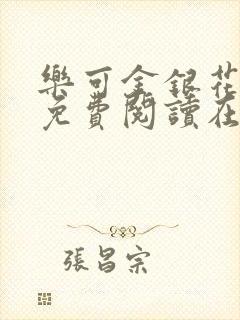 樂可金銀花
免費閱讀在
張昌宗